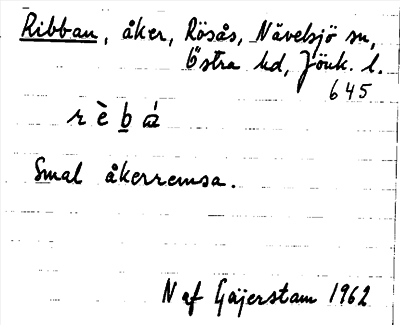 Ribban, åker, Rösås, Nävelsjö sn,
Östra hd, Jönk. l.
645
r è b á
Smal åkerremsa.
N af Geijerstam 1962